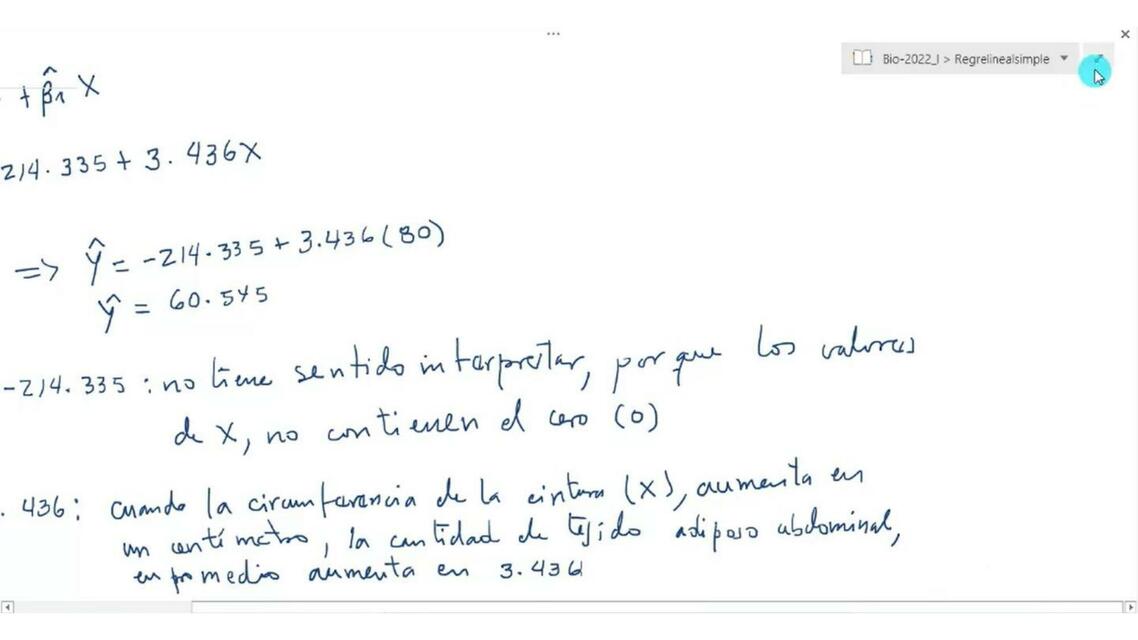 Bio-2022_I > Regrelinealsimple
+ β̂1 X
214.335 + 3.436X
=> Ŷ = -214.335 + 3.436(80)
Ŷ = 60.545
-214.335 : no tiene sentido interpretar, porque los valores
de X, no contienen el cero (0)
. 436: cuando la circunferencia de la cintura (X), aumenta en
un centímetro, la cantidad de tejido adiposo abdominal,
en promedio aumenta en 3.436